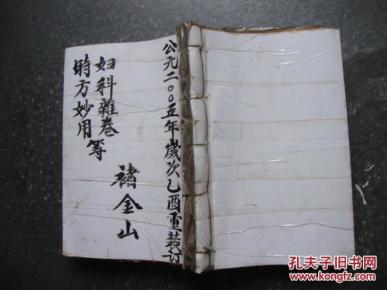 公元二〇〇五年歲次乙酉重裝訂
妇科雜卷
時方妙用等
褚金山
孔夫子旧书网